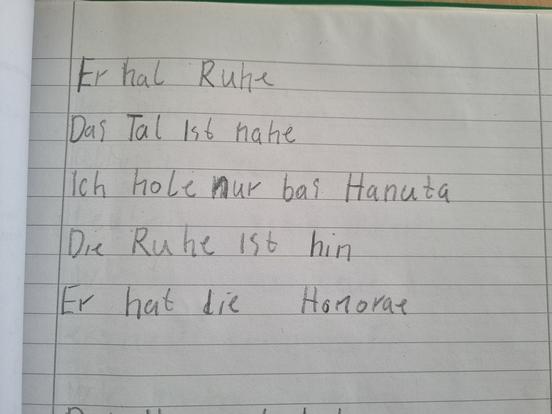 Er hal Ruhe
Das Tal ist nahe
Ich hole nur bas Hanuta
Die Ruhe ist hin
Er hat die